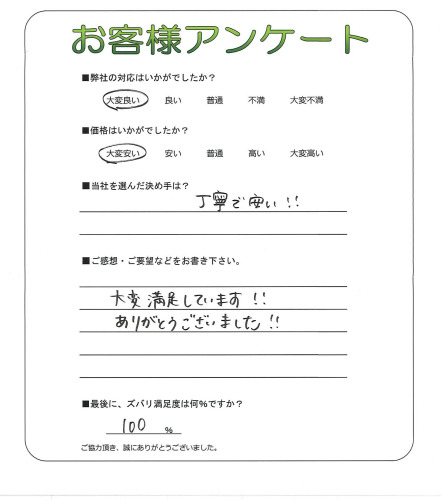 お客様アンケート
■弊社の対応はいかがでしたか？
大変良い 良い 普通 不満 大変不満
■価格はいかがでしたか？
大変安い 安い 普通 高い 大変高い
■当社を選んだ決め手は？
丁寧で安い!!
■ご感想・ご要望などをお書き下さい。
大変満足しています!!
ありがとうございました!!
■最後に、ズバリ満足度は何%ですか？
100 %
ご協力頂き、誠にありがとうございました。